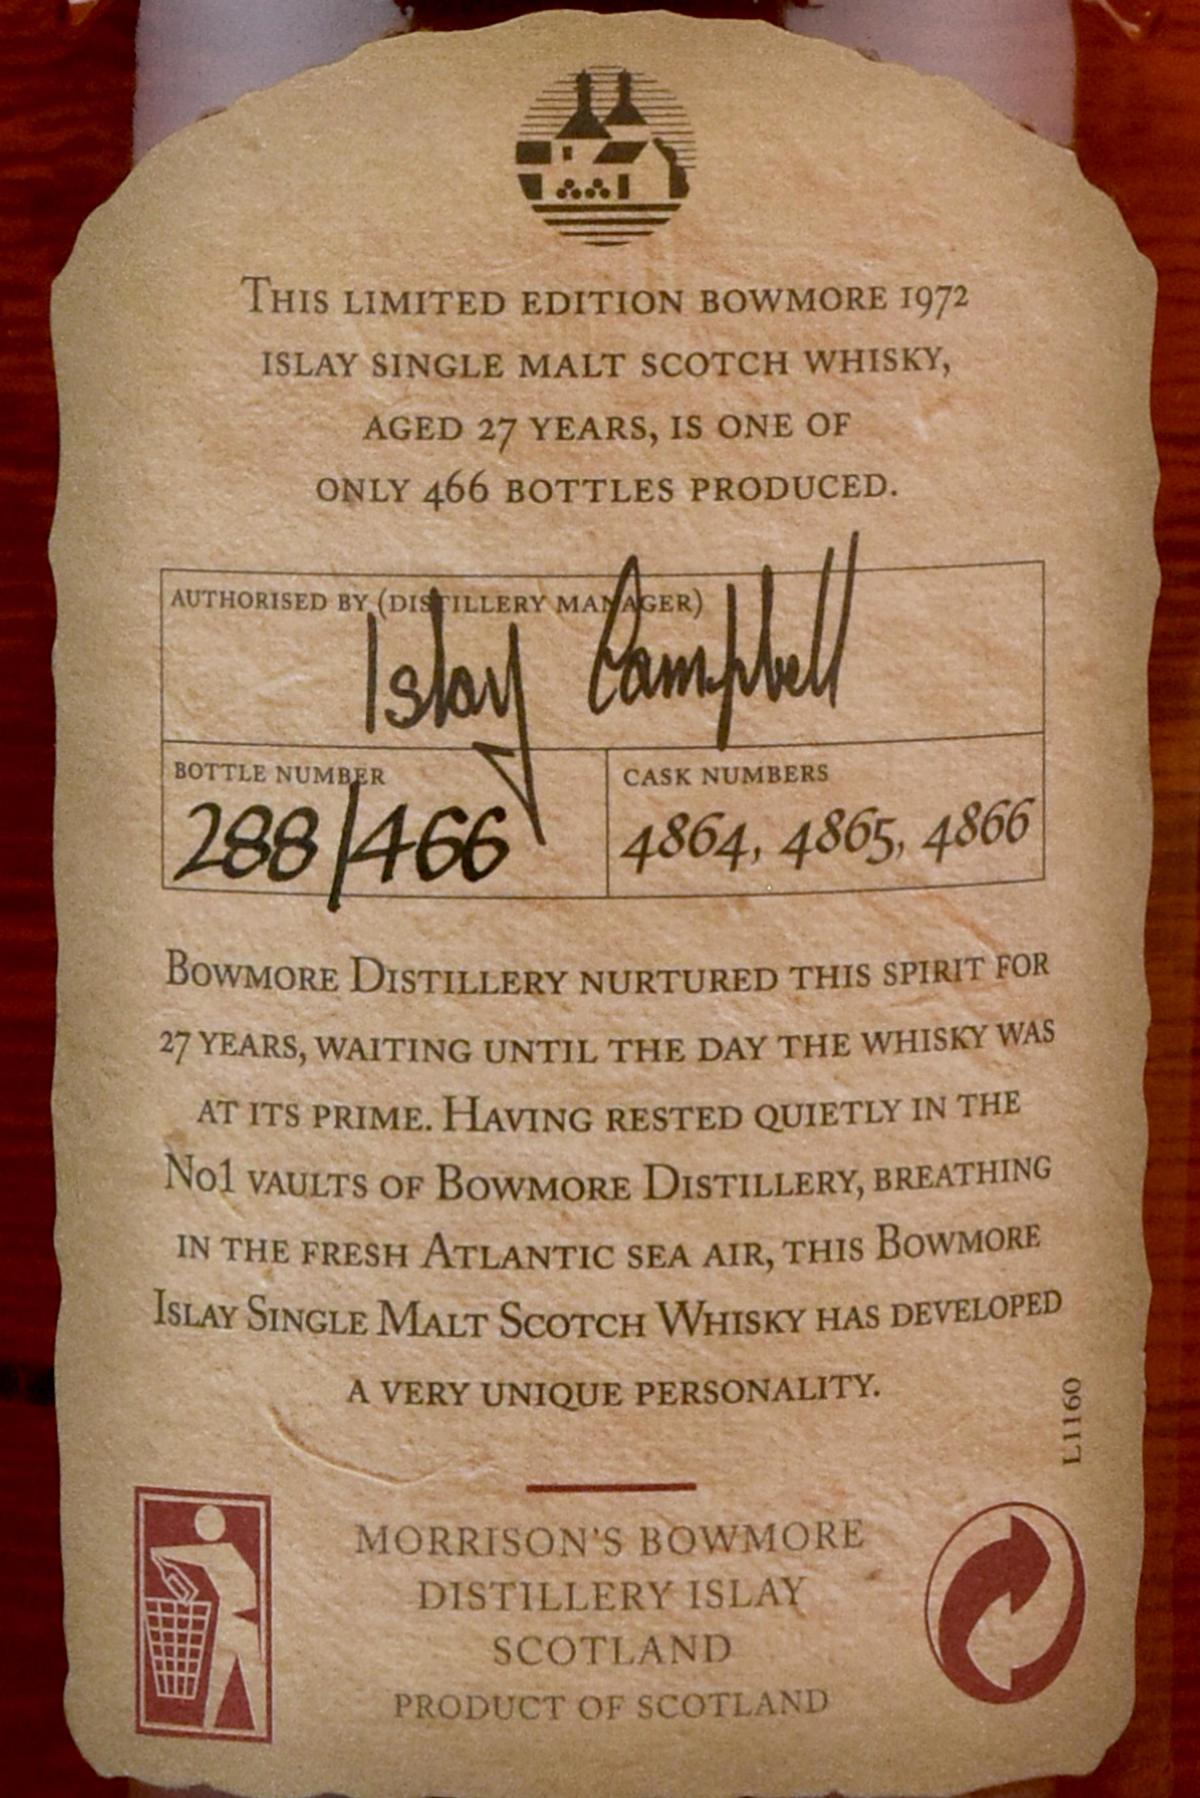 THIS LIMITED EDITION BOWMORE 1972
ISLAY SINGLE MALT SCOTCH WHISKY,
AGED 27 YEARS, IS ONE OF
ONLY 466 BOTTLES PRODUCED.
AUTHORISED BY (DISTILLERY MANAGER)
Islay Campbell
BOTTLE NUMBER
288/466
CASK NUMBERS
4864, 4865, 4866
BOWMORE DISTILLERY NURTURED THIS SPIRIT FOR
27 YEARS, WAITING UNTIL THE DAY THE WHISKY WAS
AT ITS PRIME. HAVING RESTED QUIETLY IN THE
No1 VAULTS OF BOWMORE DISTILLERY, BREATHING
IN THE FRESH ATLANTIC SEA AIR, THIS BOWMORE
ISLAY SINGLE MALT SCOTCH WHISKY HAS DEVELOPED
A VERY UNIQUE PERSONALITY.
L1160
MORRISON'S BOWMORE
DISTILLERY ISLAY
SCOTLAND
PRODUCT OF SCOTLAND